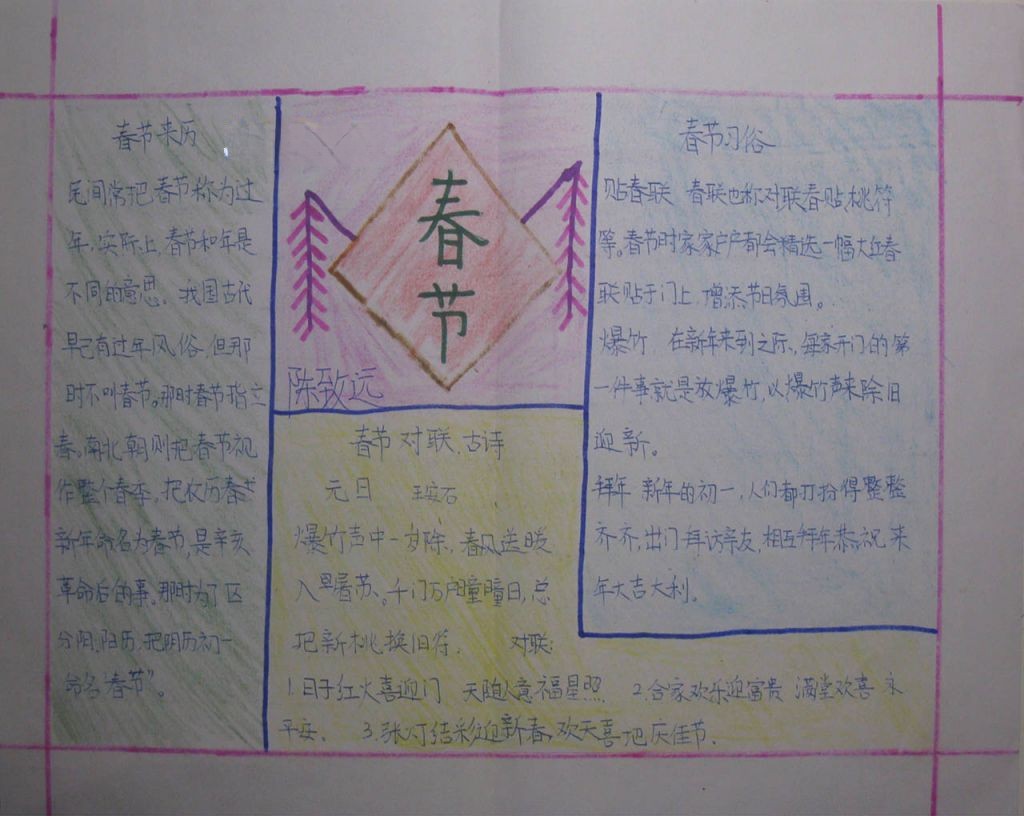 春节来历
民间常把春节称为过
年,实际上,春节和年是
不同的意思。我国古代
早已有过年风俗,但那
时不叫春节。那时春节指立
春。南北朝则把春节视
作整个春季,把农历春节
新年命名为春节,是辛亥
革命后的事。那时为了区
分阴,阳历,把阴历初一
命名“春节”。
春
节
陈致远
春节对联.古诗
元日 王安石
爆竹声中一岁除,春风送暖
入屠苏。千门万户曈曈日,总
把新桃换旧符. 对联:
1.日子红火喜迎门 天随人意福星照 2.合家欢乐迎富贵 满堂欢喜永
平安. 3.张灯结彩迎新春,欢天喜地庆佳节.
春节习俗
贴春联 春联也称对联春贴,桃符
等。春节时家家户户都会精选一幅大红春
联贴于门上,增添节日氛围。
爆竹 在新年来到之际,每家开门的第
一件事就是放爆竹,以爆竹声来除旧
迎新。
拜年 新年的初一,人们都打扮得整整
齐齐,出门拜访亲友,相互拜年恭祝来
年大吉大利。